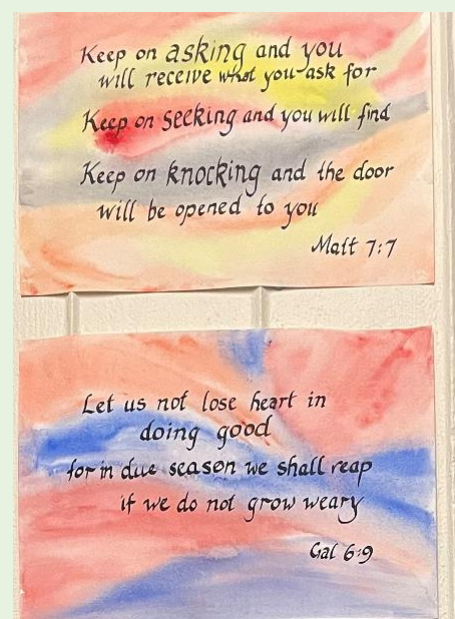 Keep on asking and you
will receive what you ask for
Keep on seeking and you will find
Keep on knocking and the door
will be opened to you
Matt 7:7
Let us not lose heart in
doing good
for in due season we shall reap
if we do not grow weary
Gal 6:9